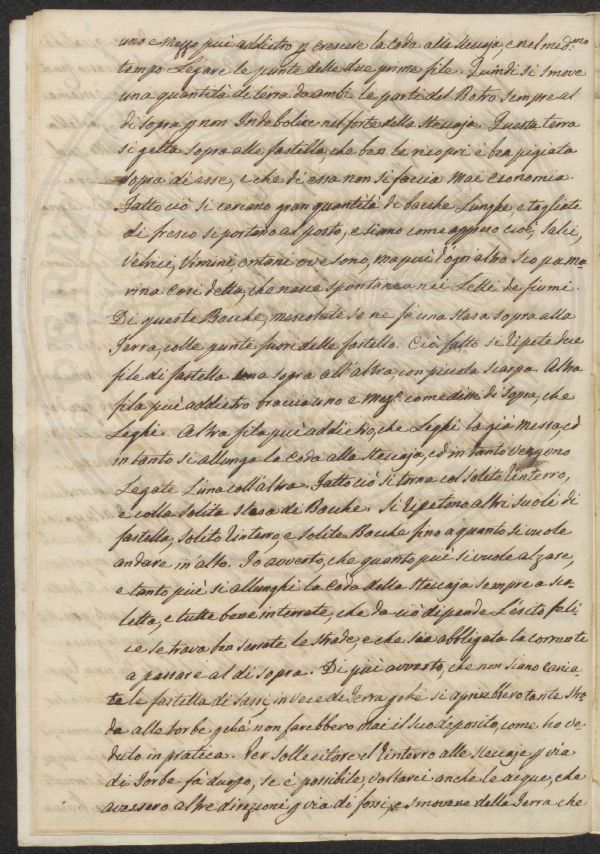 uno e mezzo più addietro p crescere la Coda alla Steccaja, e nel med.mo
tempo Legare le punte delle due prime file. Quindi si smove
una quantità di terra da ambi le parti del Botro sempre al
di sopra p non Indebolire nel forte della Steccaja. Questa terra
si getta sopra alle fastella, che ben le ricopri e ben pigiata
sopra di esse, e che di essa non si faccia mai economia.
Fatto ciò si cercano gran quantità di bacche Lunghe, e tagliate
di fresco si portano al posto, e siano come appresso cioè, Salci,
Vetrici, Vimini, ontani ove sono, ma più d'ogni altro Scopa ma=
rina così detta, che nasce spontanea nei Letti de fiumi.
Di queste Bacche, mescolate se ne fà una stesa sopra alla
Terra, colle punte fuori delle fastella. Ciò fatto si ripete due
file di fastella una sopra all'altra, con piccola scarpa. Altra
fila più addietro braccia uno e mezz. come dissi di sopra, che
Leghi. Altra fila più addietro, che Leghi la già messa, ed
intanto si allunga la Coda alla Steccaja, ed intanto vengono
Legate L'una coll'altra. Fatto ciò si torna col solito Rinterro,
e colla solita Stesa di Bacche. Si ripetono altri suoli di
fastella, solito rinterro, e solite Bacche fino a quanto si vuole
andare in alto. Io avverto, che quanto più si vuole alzare,
e tanto più si allunghi la Coda della Steccaja sempre a sca=
letta, e tutte bene interrate, che da ciò dipende L'esito feli=
ce se trova ben serrate le strade, e che sia obbligata la corrente
a passare al di sopra. Di più avverto, che non siano carica=
te le fastella di sassi in vece di Terra, p chè si aprirebbero tante stra=
da alle torbe, p chà non farebbero mai il suo deposito, come ho ve=
duto in pratica. Per sollecitare il Rinterro alle Steccaje p via
di Torbe fà duopo, se è possibile, voltarci anche le acque, che
avessero altre direzioni p via di fossi, e smovere della Terra che